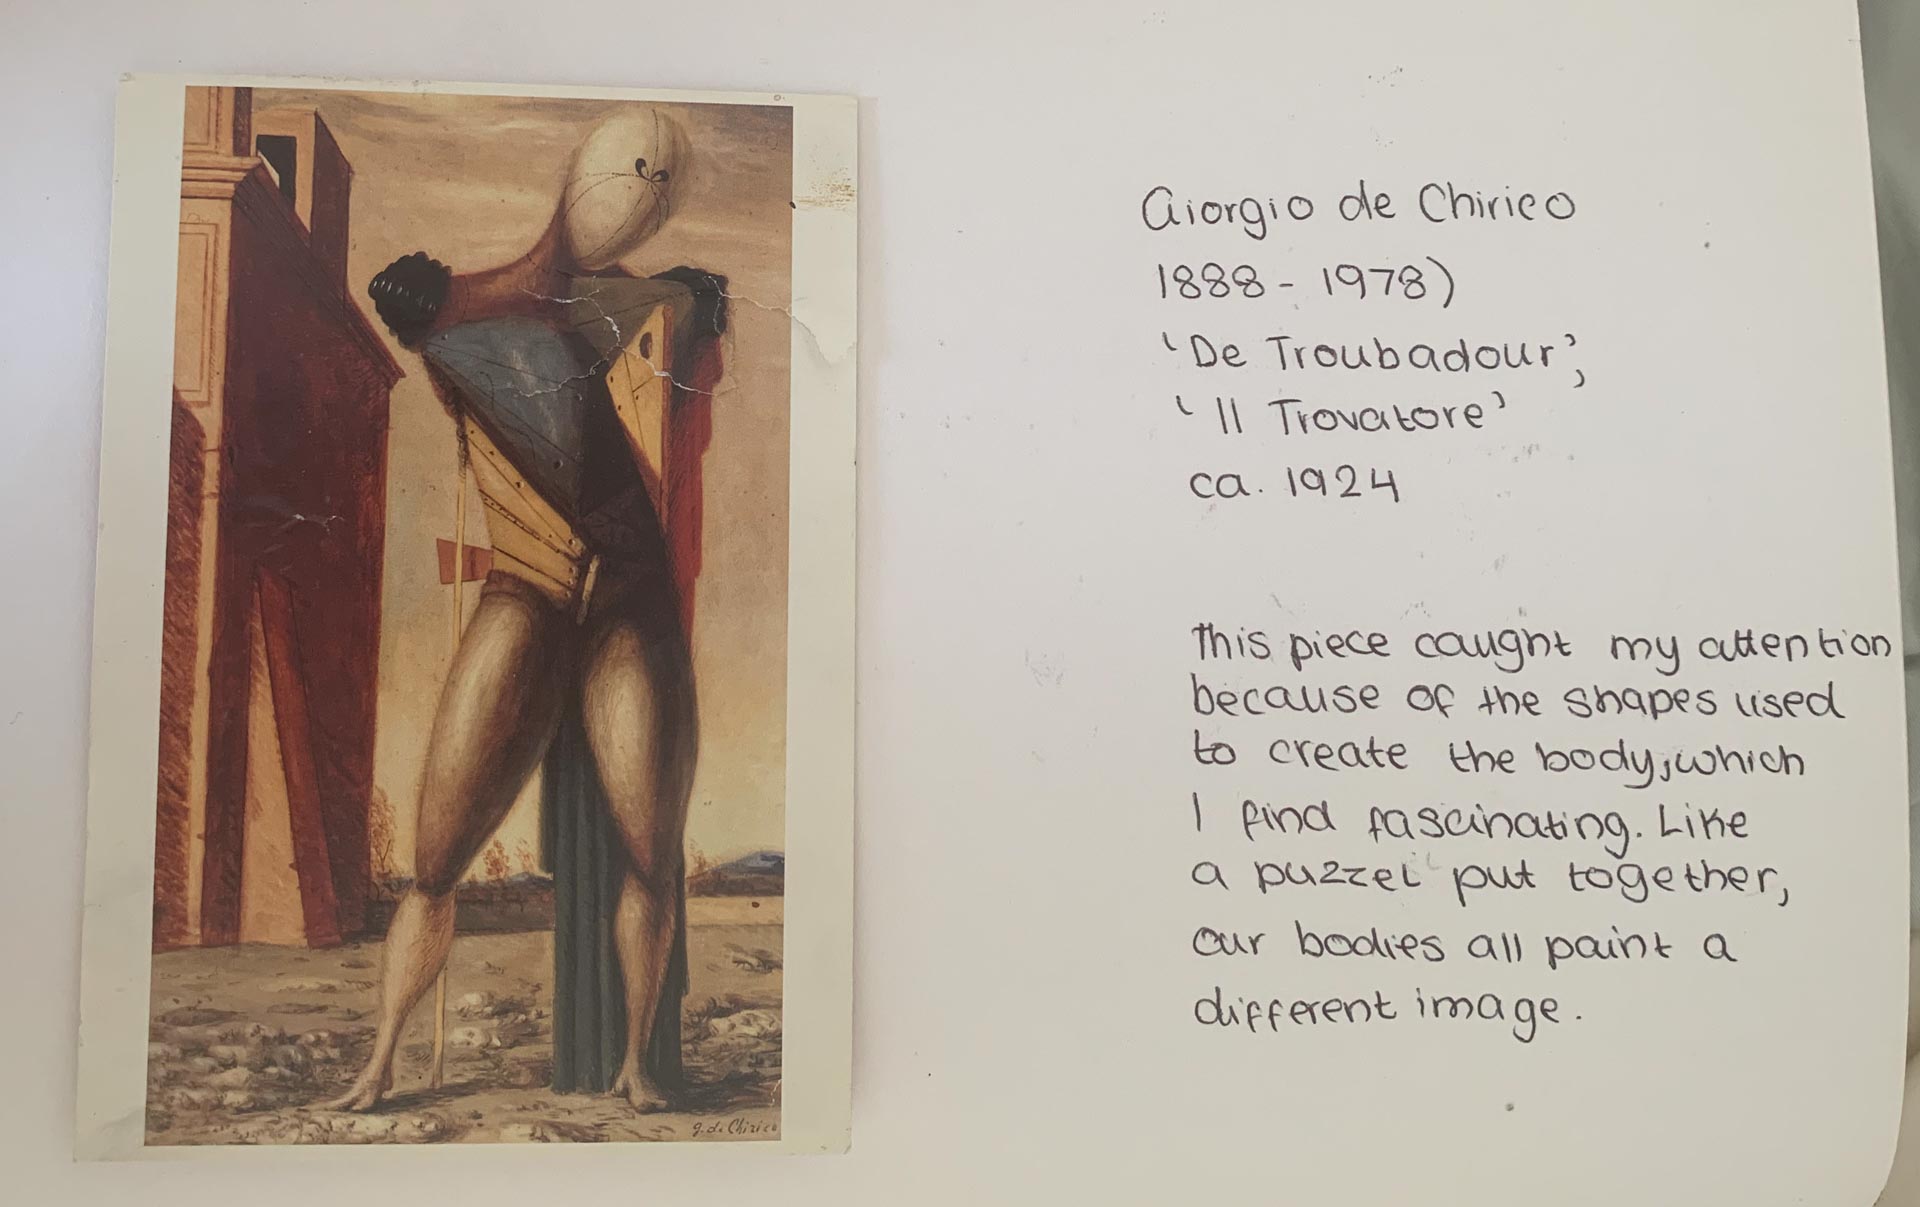 g. de Chirico
Giorgio de Chirico
1888 - 1978)
'De Troubadour';
'Il Trovatore'
ca. 1924
This piece caught my attention
because of the shapes used
to create the body, which
I find fascinating. Like
a puzzel put together,
our bodies all paint a
different image.